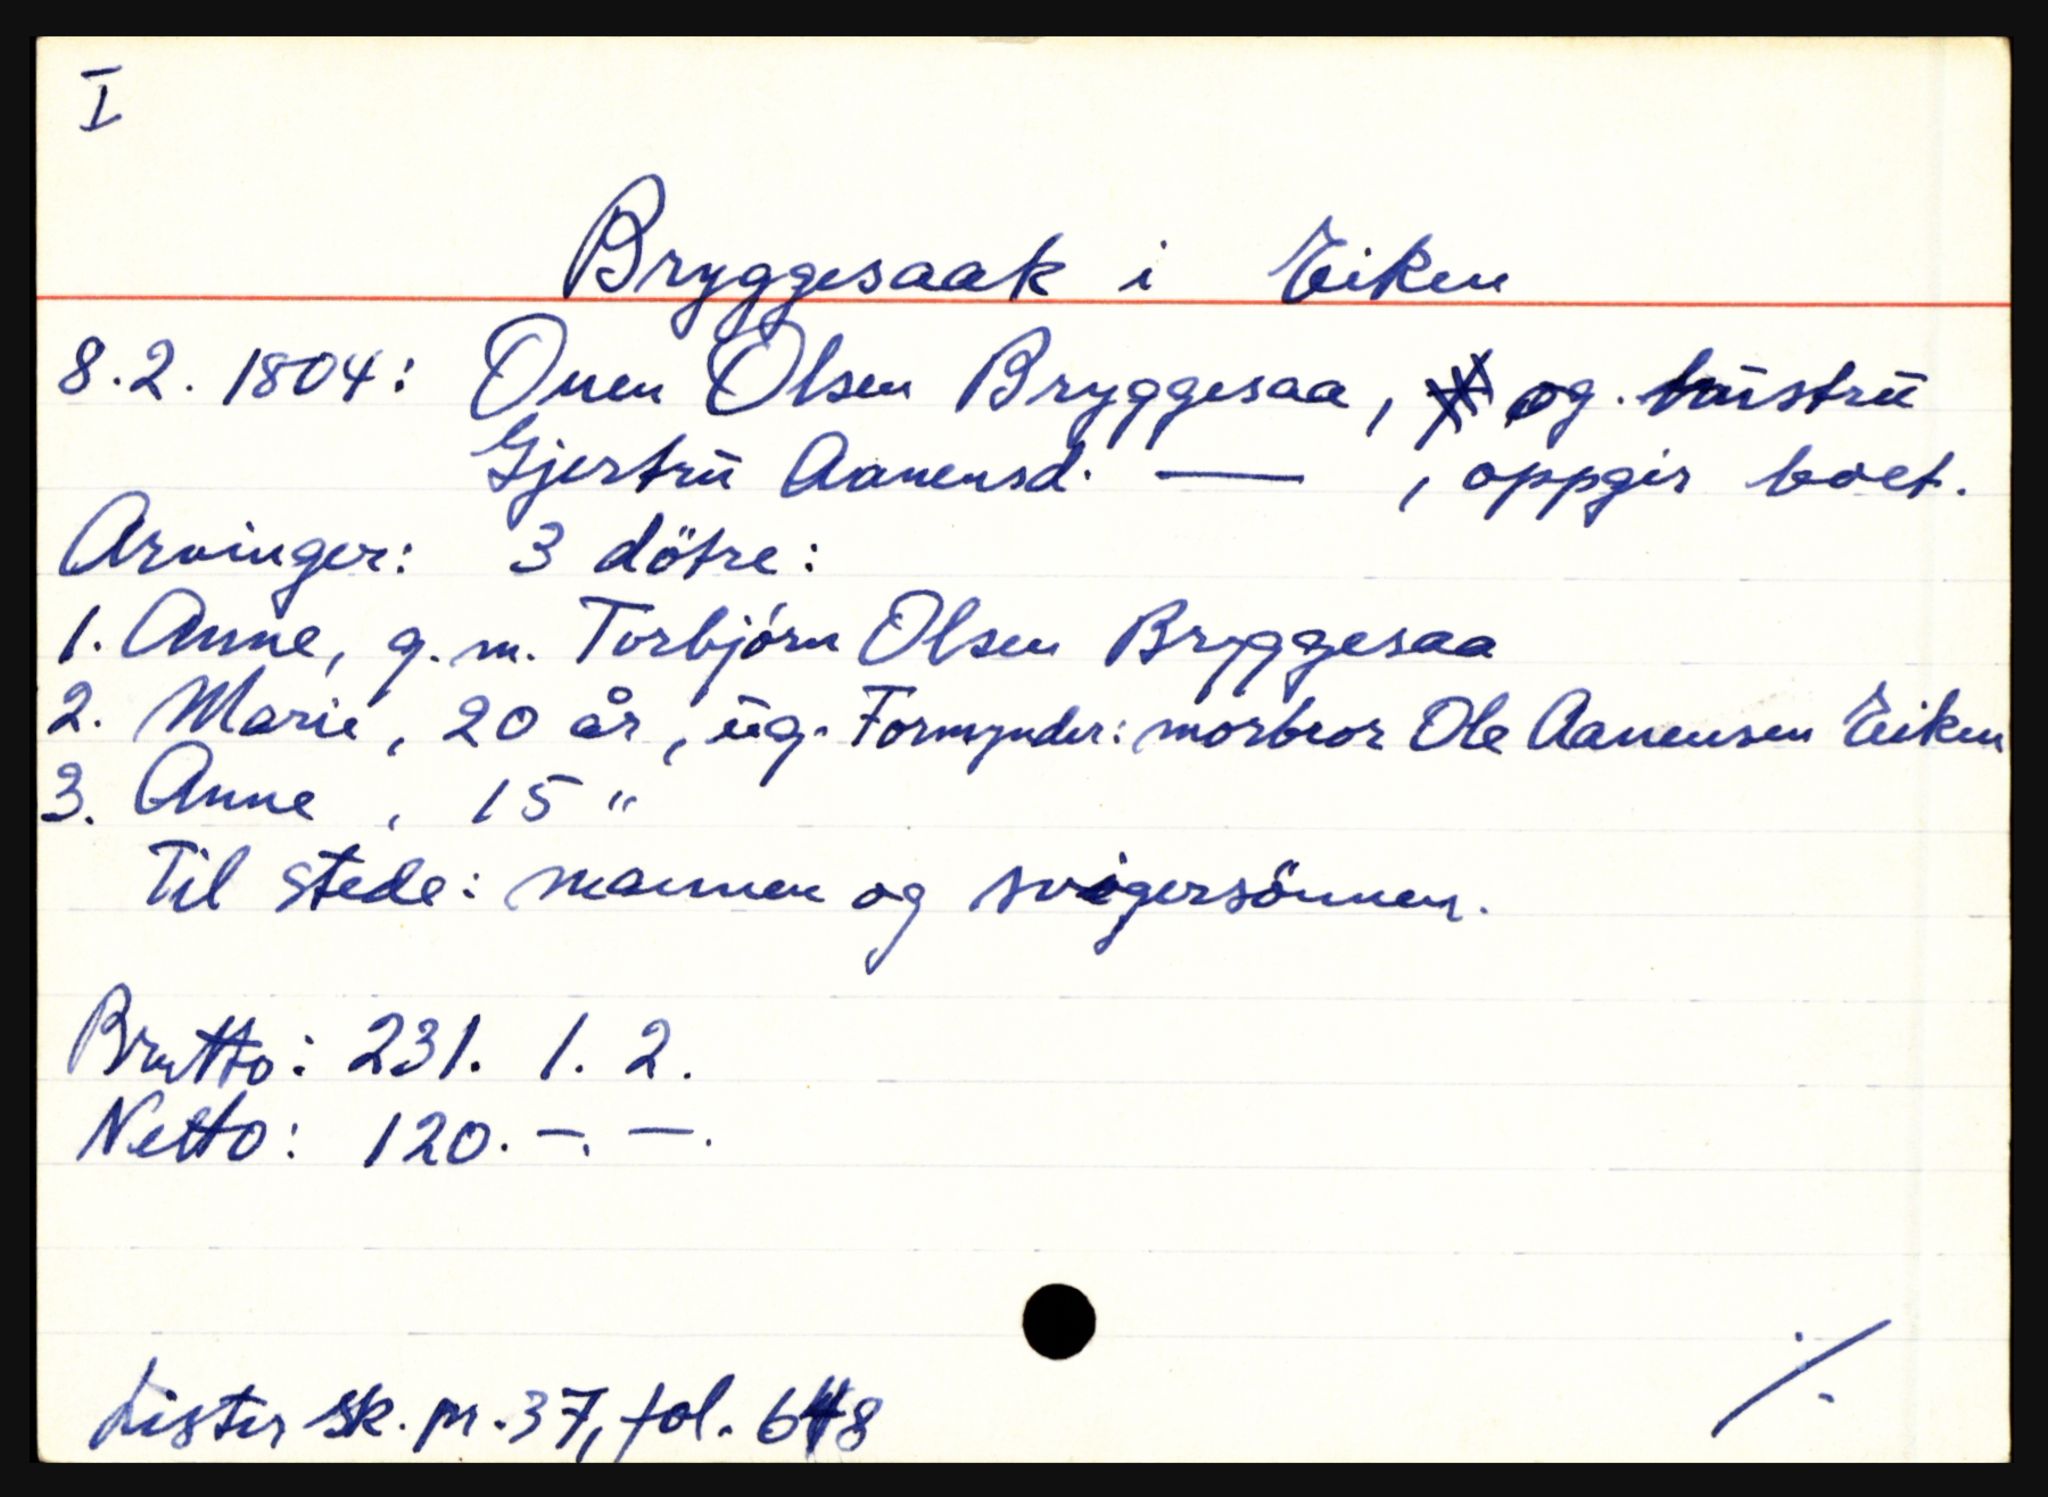 I
Bryggesaak i Eiken
8.2. 1804: Onen Olsen Bryggesaa, og hustru
Gjertru Aanensd. — , oppgir boet.
Arvinger: 3 dötre:
1. Anne, g. m. Torbjørn Olsen Bryggesaa
2. Marie, 20 år, ug. Formynder: morbror Ole Aanensen Eiken
3. Anne, 15 "
Til stede: mannen og svigersönnen.
Brutto: 231. 1. 2.
Netto: 120. -. -.
Lister sk. pr. 37, fol. 648
./.